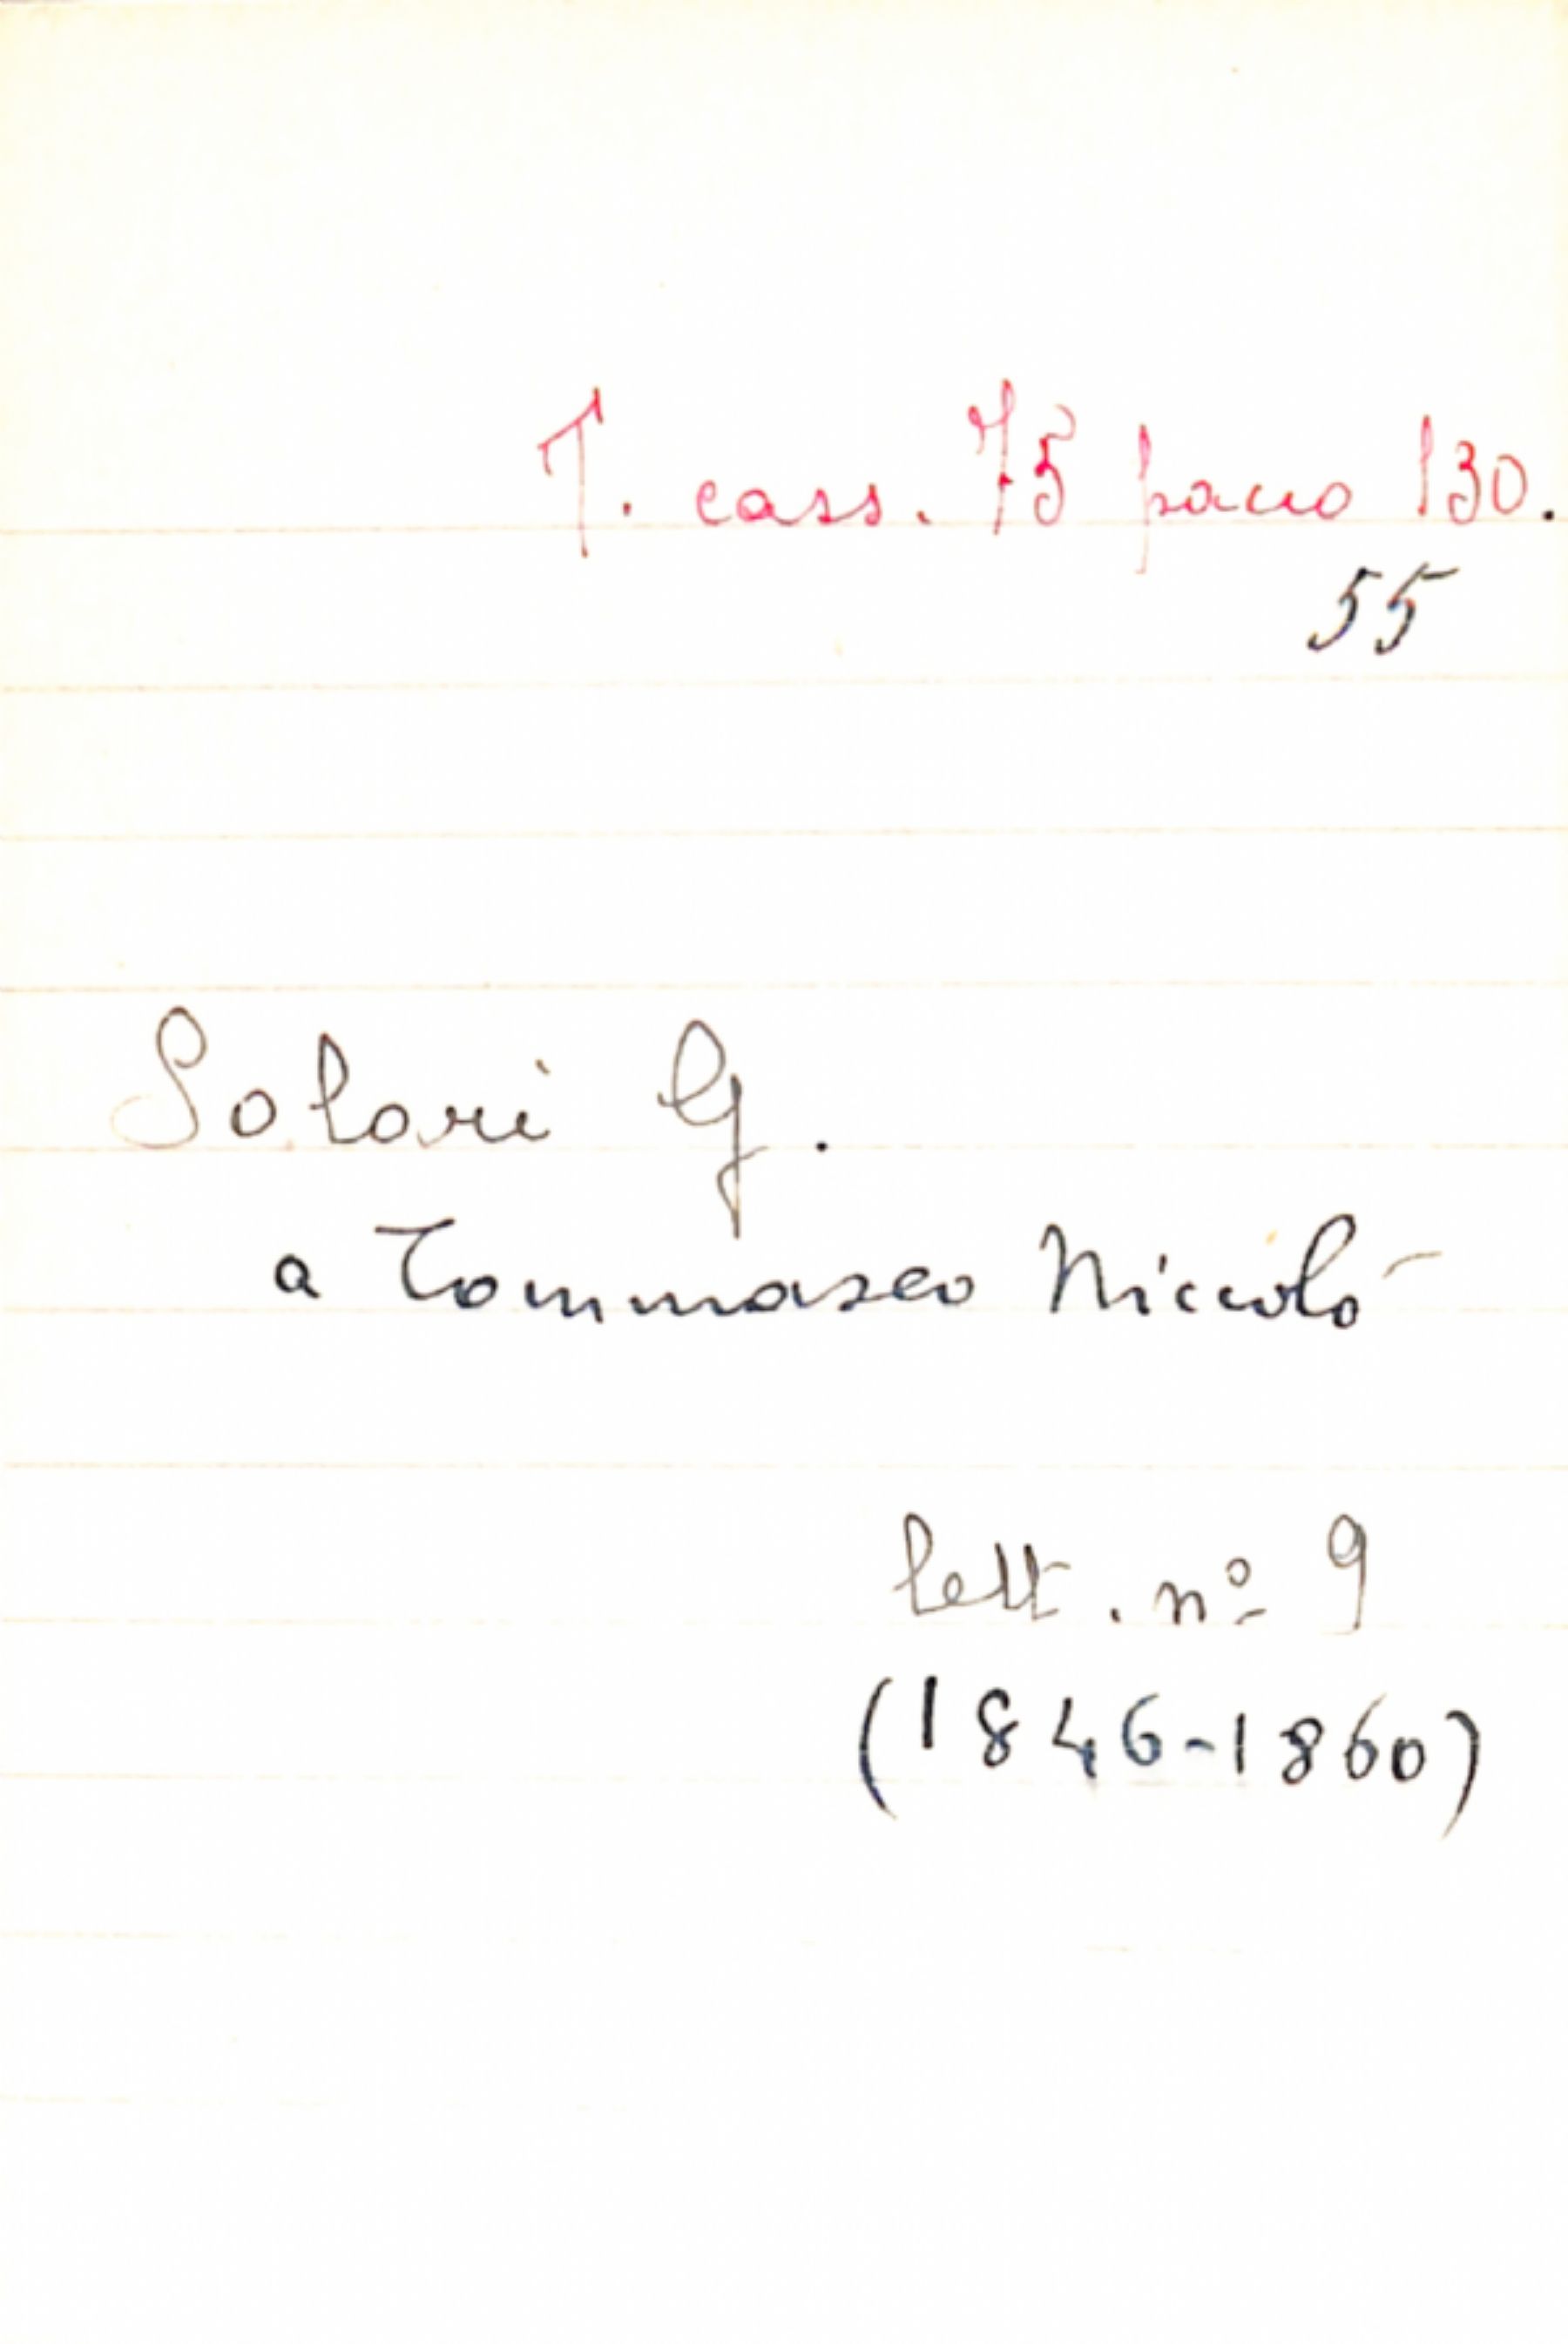 T. cass. 75 pacco 130.
55
Solari G.
a Tommaseo Niccolò
lett. nº 9
(1846-1860)